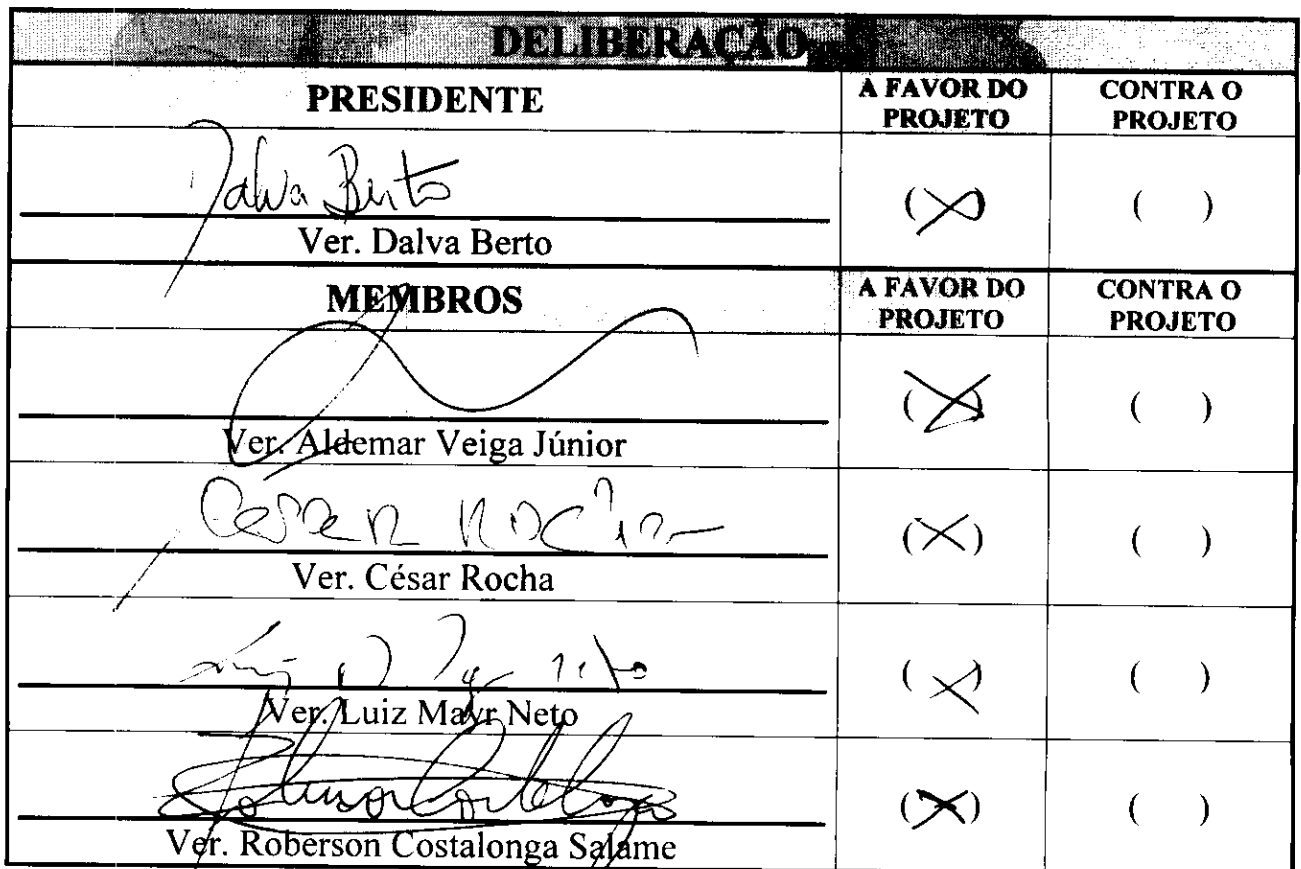 DELIBERAÇÃO
PRESIDENTE A FAVOR DO PROJETO CONTRA O PROJETO
Dalva Berto
Ver. Dalva Berto (X) ( )
MEMBROS A FAVOR DO PROJETO CONTRA O PROJETO
Ver. Aldemar Veiga Júnior (X) ( )
Cesar Rocha
Ver. César Rocha (X) ( )
Ver. Luiz Mayr Neto (X) ( )
Ver. Roberson Costalonga Salame (X) ( )